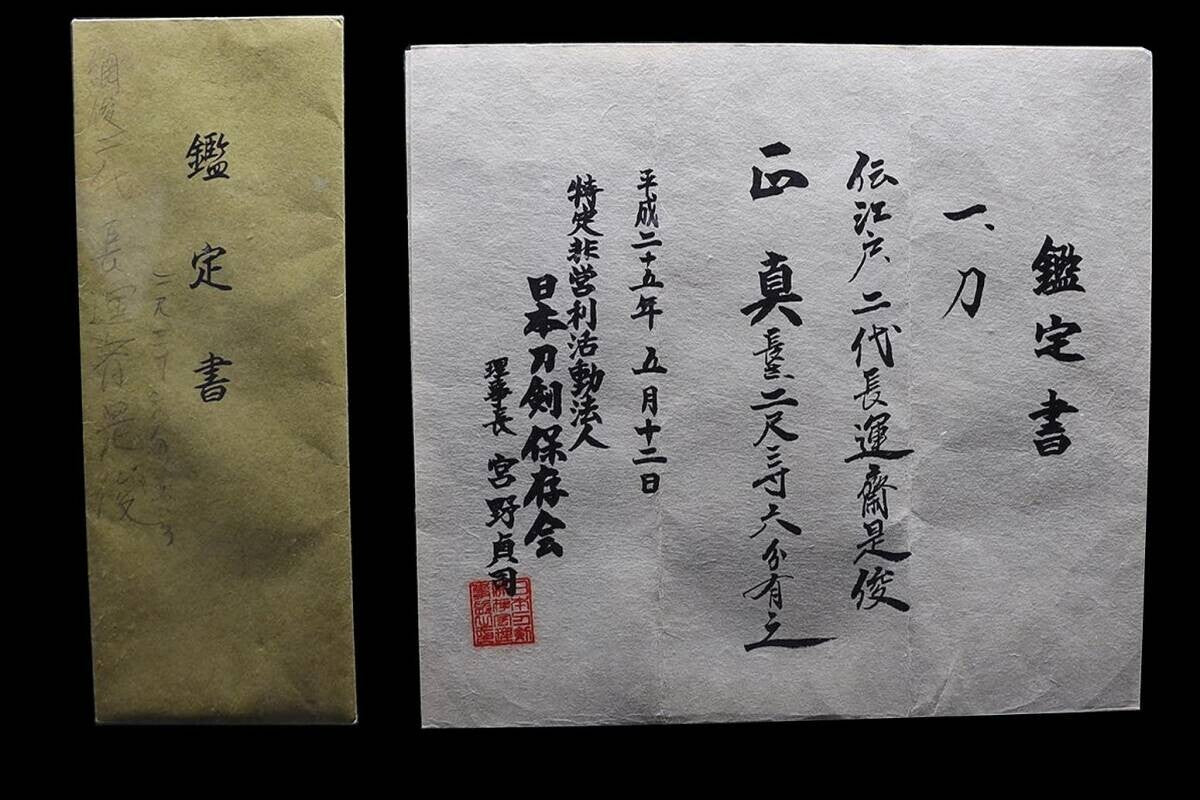 鑑定書
一、刀
伝江戸二代長運齋是俊
正真 長さ二尺三寸六分有之
平成二十五年 五月十二日
特定非営利活動法人
日本刀剣保存会
理事長 宮野貞司
鑑定書
綱俊二代長運斎是俊